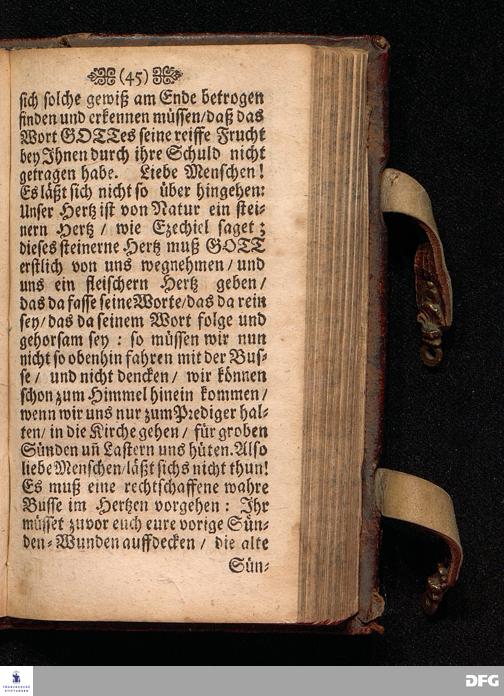 (45)
sich solche gewiß am Ende betrogen
finden und erkennen müssen/daß das
Wort GOTTes seine reiffe Frucht
bey Ihnen durch ihre Schuld nicht
getragen habe. Liebe Menschen!
Es läßt sich nicht so über hingehen:
Unser Hertz ist von Natur ein stei-
nern Hertz / wie Ezechiel saget;
dieses steinerne Hertz muß GOTT
erstlich von uns wegnehmen / und
uns ein fleischern Hertz geben /
das da fasse seine Worte/das da rein
sey/das da seinem Wort folge und
gehorsam sey : so müssen wir nun
nicht so obenhin fahren mit der Bus-
se / und nicht dencken / wir können
schon zum Himmel hinein kommen /
wenn wir uns nur zum Prediger hal-
ten/ in die Kirche gehen / für groben
Sünden uñ Lastern uns hüten. Also
liebe Menschen/läßt sichs nicht thun!
Es muß eine rechtschaffene wahre
Busse im Hertzen vorgehen : Ihr
müsset zuvor euch eure vorige Sün-
den-Wunden auffdecken / die alte
Sün-
FRANCKESCHE
STIFTUNGEN
DFG